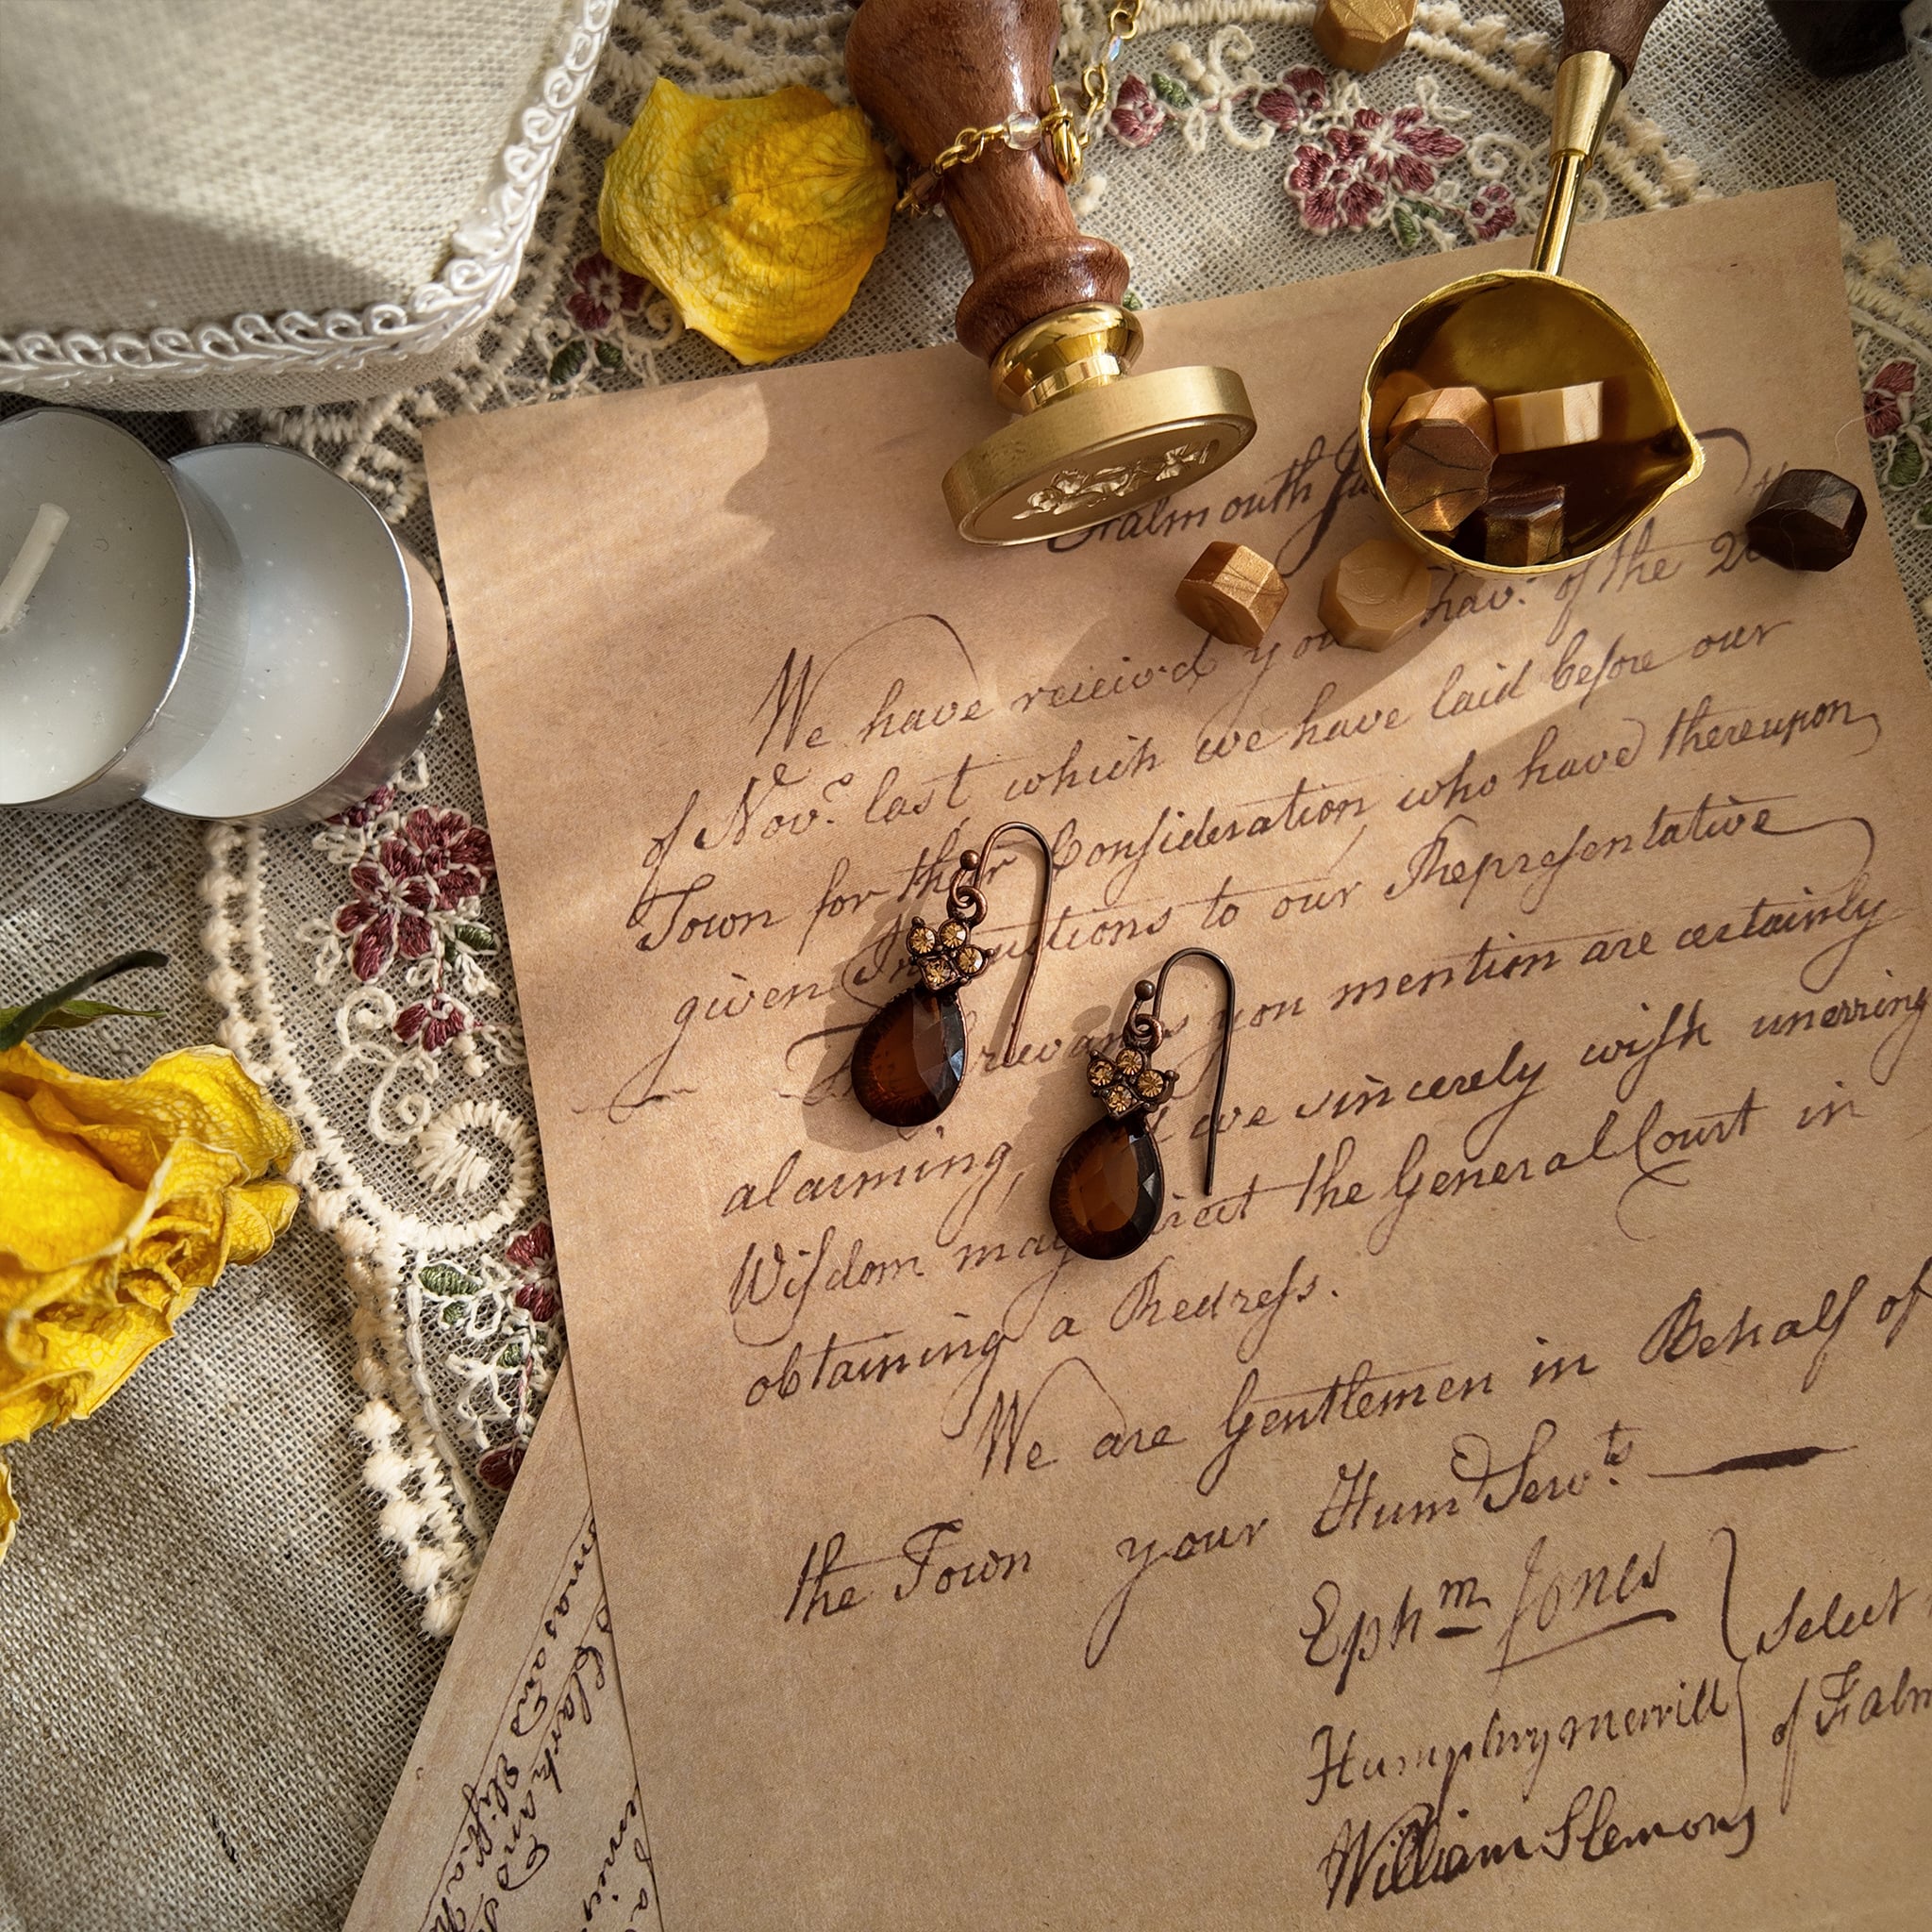 Falmouth
We have receiv'd your fav.r of the 20
of Nov.r last which we have laid before our
Town for their Consideration who have thereupon
given Instructions to our Representative
you mention are certainly
alarming, we sincerely wish unerring
Wisdom may the General Court in
obtaining a Redress.
We are Gentlemen in Behalf of
the Town your Hum Serv.ts
Eph.m Jones
Humphry merrill
William Slemons
Select
of Falm